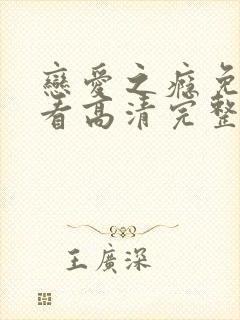 戀愛之癮免
看高清完整
王廣深